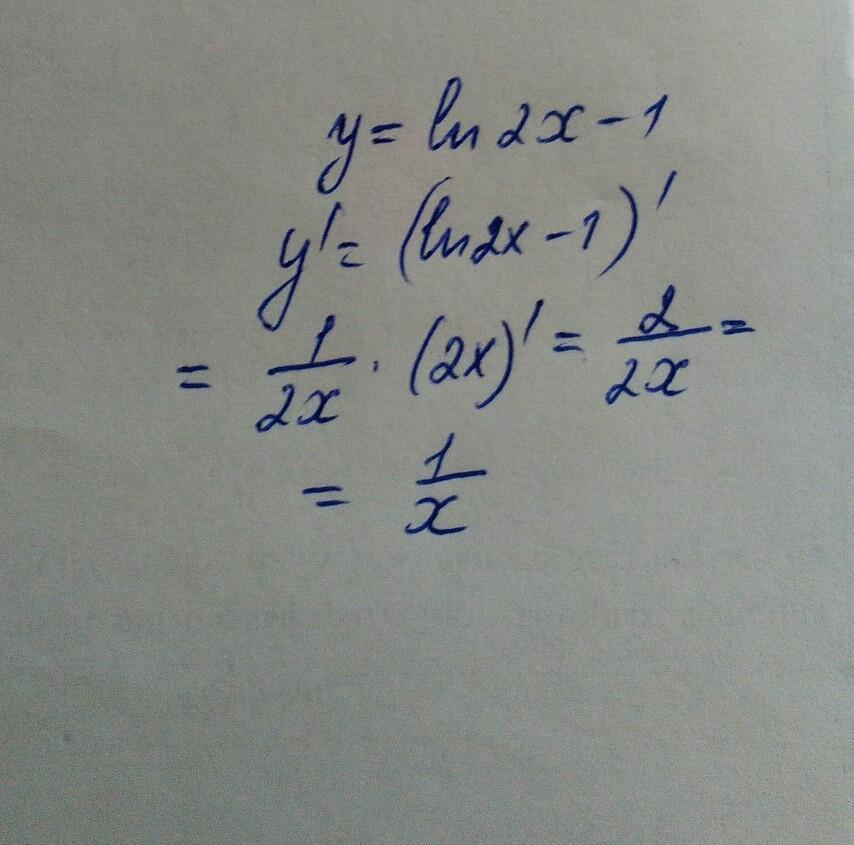 y = ln 2x - 1
y' = (ln2x - 1)'
= 1/2x · (2x)' = 2/2x =
= 1/x